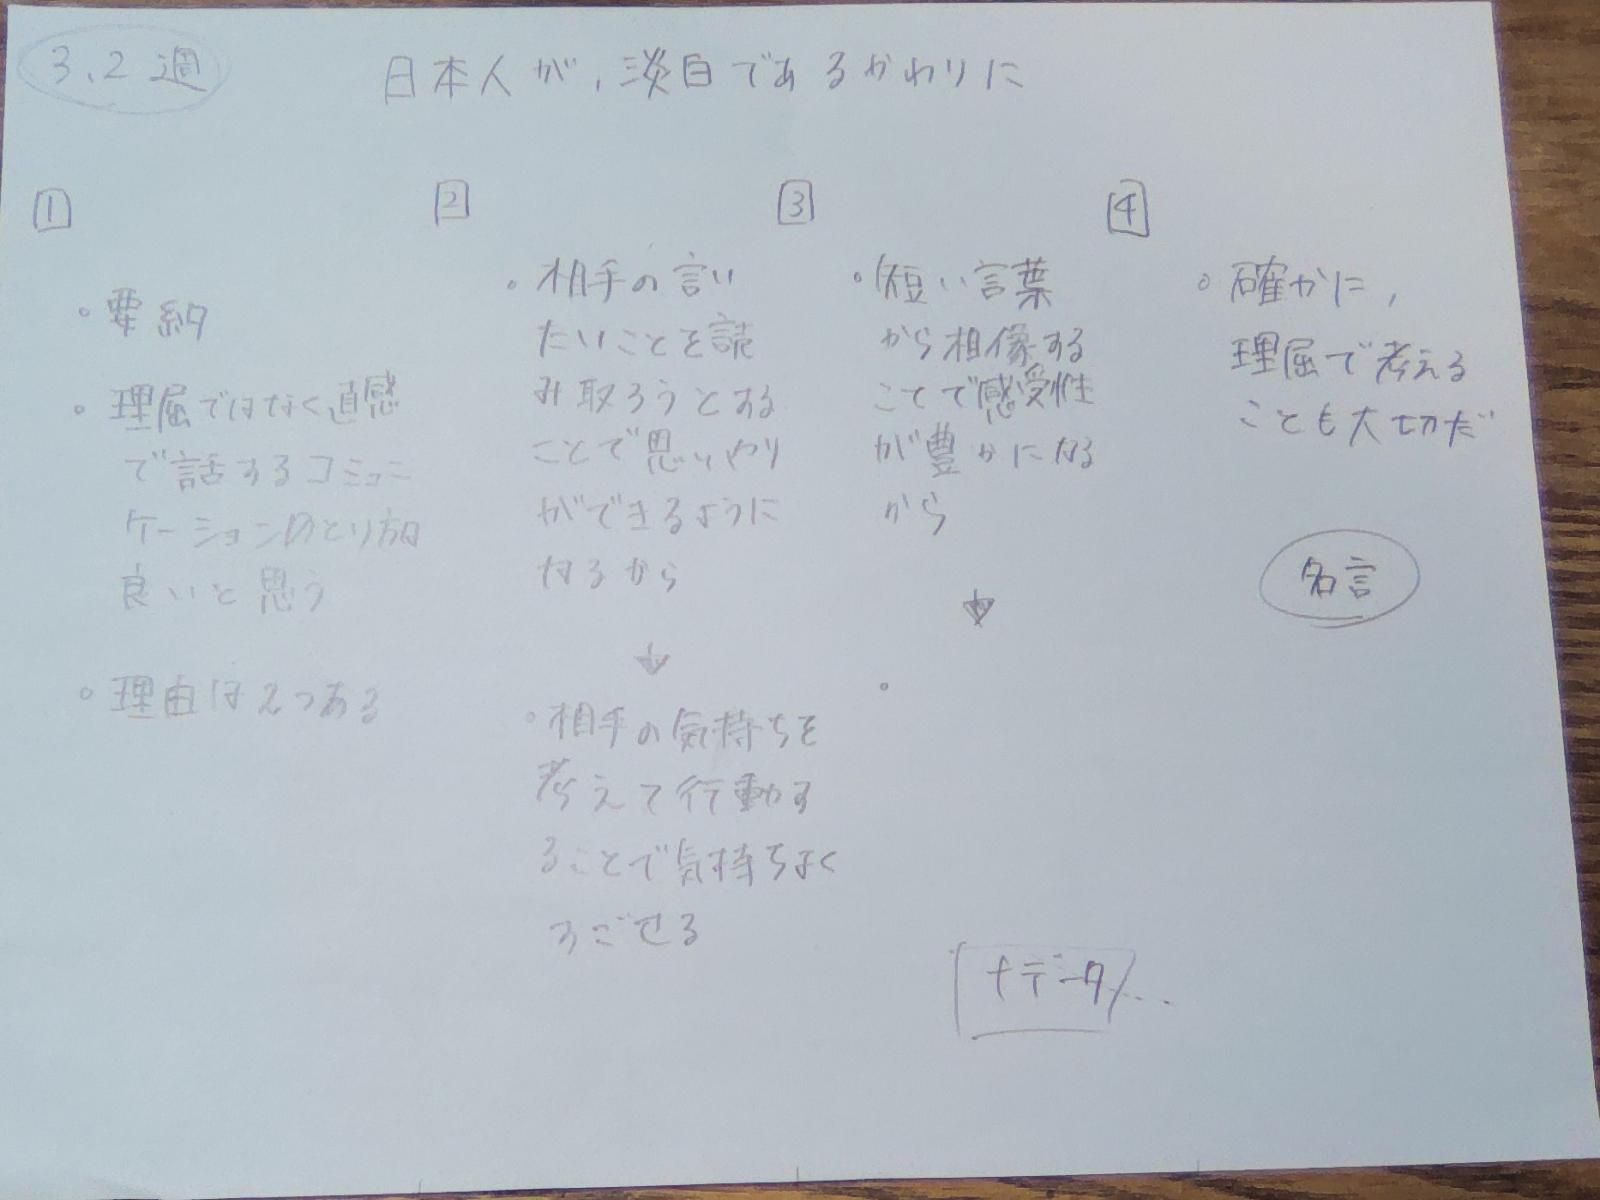 3.2週
日本人が、淡白であるかわりに
1
・要約
・理屈ではなく直感
で話するコミュニ
ケーションのとり方は
良いと思う
・理由は2つある
2
・相手の言い
たいことを読
み取ろうとする
ことで思いやり
ができるように
なるから
↓
・相手の気持ちを
考えて行動す
ることで気持ちよく
すごせる
3
・短い言葉
から想像する
ことで感受性
が豊かになる
から
↓
・
4
・確かに、
理屈で考える
ことも大切だ
名言
+データ...